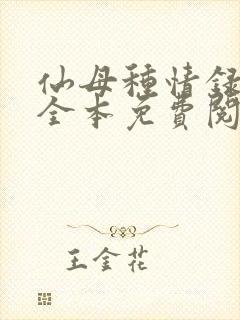 仙母種情録
全本免費閱
王金花